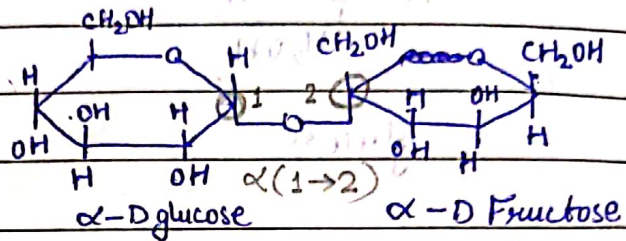 CH₂OH
O H CH₂OH O CH₂OH
H 1 2
OH H O H OH
OH H OH H H
H OH α(1→2)
α-D glucose α-D Fructose